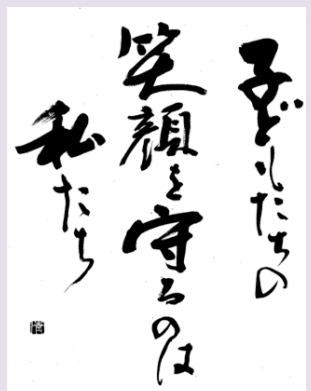 子どもたちの
笑顔を守るのは
私たち